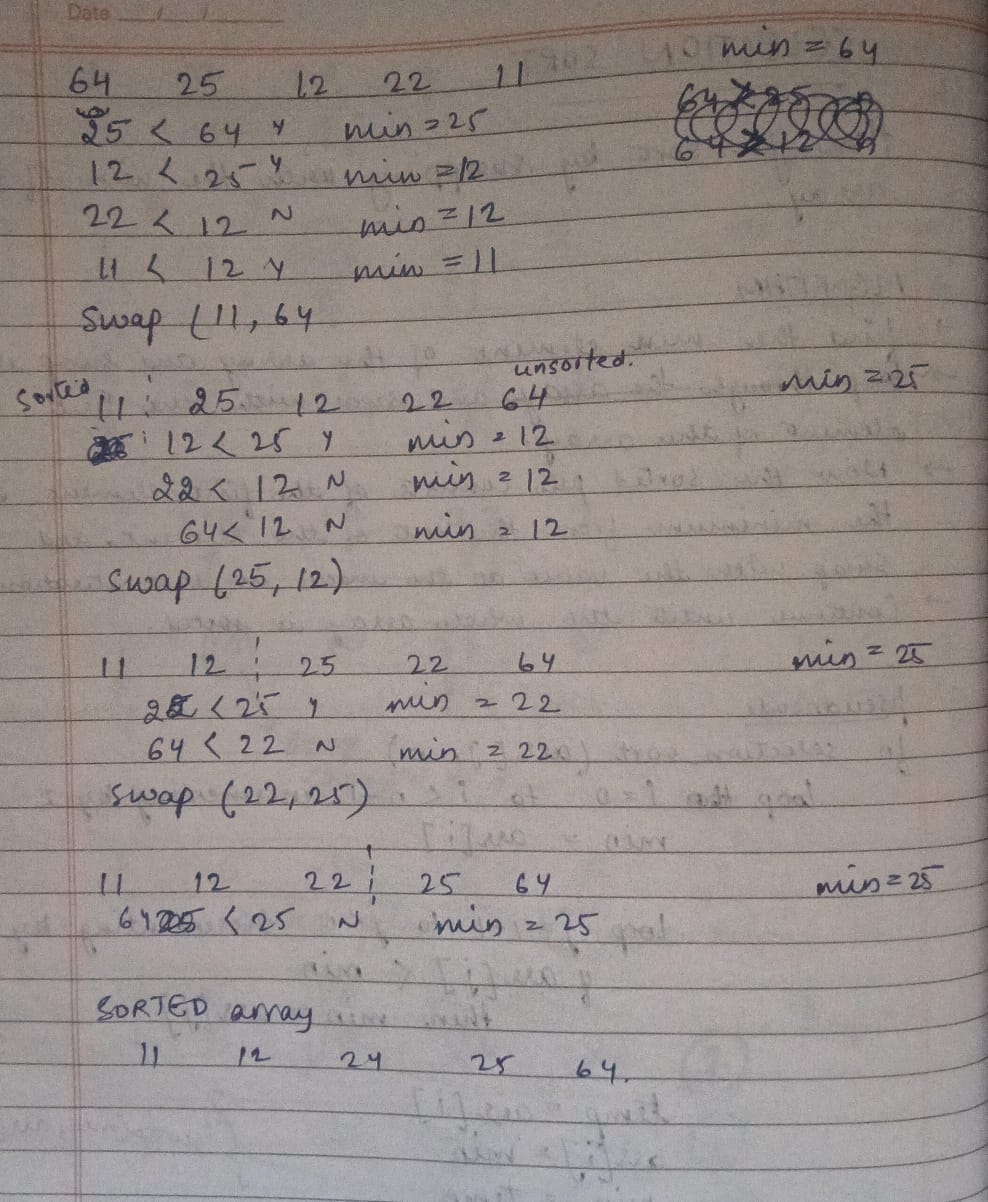 Date / /
min = 64
64 25 12 22 11
25 < 64 Y min = 25
12 < 25 Y min = 12
22 < 12 N min = 12
11 < 12 Y min = 11
Swap (11, 64
unsorted.
Sorted 11 25 12 22 64 min = 25
12 < 25 Y min = 12
22 < 12 N min = 12
64 < 12 N min = 12
Swap (25, 12)
11 12 25 22 64 min = 25
22 < 25 Y min = 22
64 < 22 N min = 22
Swap (22, 25)
11 12 22 25 64 min = 25
64 < 25 N min = 25
SORTED array
11 12 24 25 64.